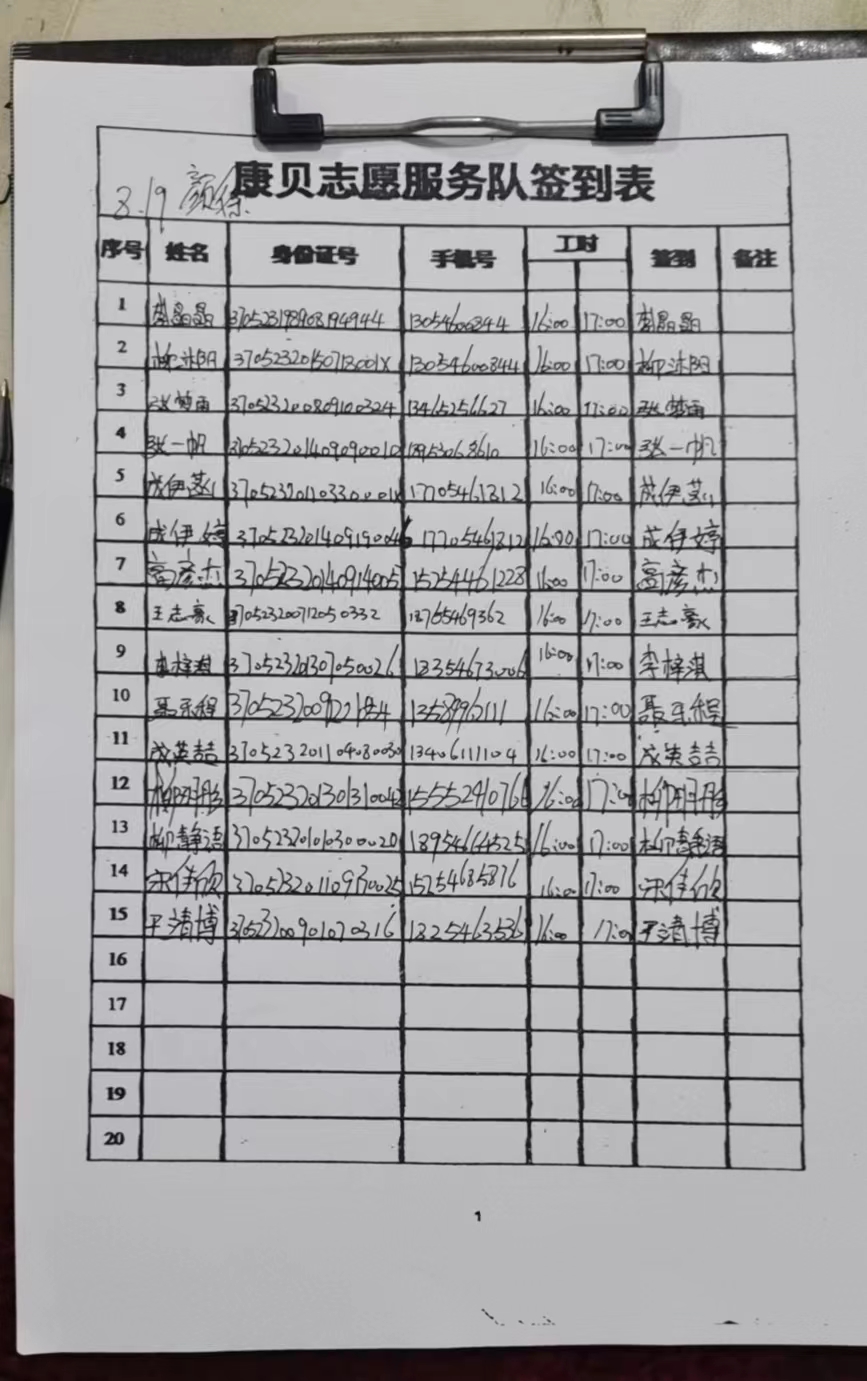 8.19
康贝志愿服务队签到表
序号 姓名 身份证号 手机号 工时 签到 备注
1 晶晶 370523198908194944 13054600844 16:00 17:00 晶晶
2 柳沐阳 37052320150713001X 13054600844 16:00 17:00 柳沐阳
3 张梦雨 370523200809100324 13465256627 16:00 17:00 张梦雨
4 张一帆 370523201409090010 16:00 17:00 张一帆
5 成伊 17705461812 16:00 17:00 成伊
6 成伊婷 370523201409190046 17705461812 16:00 17:00 成伊婷
7 高彦杰 37052320140914005 15254461228 16:00 17:00 高彦杰
8 王志豪 370523200712050332 13765469362 16:00 17:00 王志豪
9 李梓淇 370523201307050026 13354673006 16:00 17:00 李梓淇
10 聂乐程 16:00 17:00 聂乐程
11 成英喆 370523201104080030 13406111104 16:00 17:00 成英喆
12 柳玥彤 370523201301310042 15552910766 16:00 17:00 柳玥彤
13 柳静语 370523201010300020 18954664525 16:00 17:00 柳静语
14 宋佳欣 370523201109130025 15254685816 16:00 17:00 宋佳欣
15 平靖博 370523200901070316 16:00 17:00 平靖博
16
17
18
19
20
1